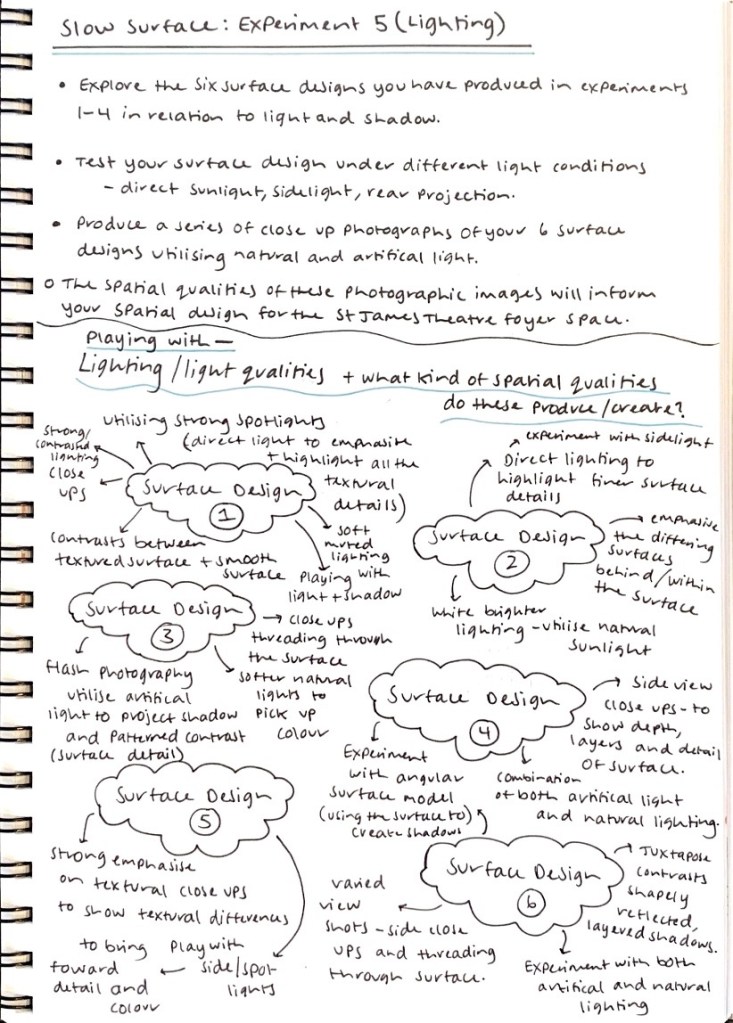 Slow Surface: Experiment 5 (Lighting)
• Explore the six surface designs you have produced in experiments
1-4 in relation to light and shadow.
• Test your surface design under different light conditions
- direct sunlight, sidelight, rear projection.
• Produce a series of close up photographs of your 6 surface
designs utilising natural and artifical light.
o The spatial qualities of these photographic images will inform
your spatial design for the St James Theatre foyer space.
Playing with -
Lighting/light qualities + what kind of spatial qualities
do these produce/create?
Surface Design
1
Strong/
contrasted
lighting
close
ups
utilising strong spotlights
(direct light to emphasise
+ highlight all the
textural
details)
soft
muted
lighting
Playing with
light + shadow
contrasts between
textured surface + smooth
surface
Surface Design
2
experiment with sidelight
Direct lighting to
highlight finer surface
details
emphasise
the differing
surfaces
behind/within
the surface
White brighter
lighting - utilise natural
sunlight
Surface Design
3
close ups
threading through
the surface
softer natural
lights to
pick up
colour
flash photography
utilise artifical
light to project shadow
and patterned contrast
(surface detail)
Surface Design
4
side view
close ups - to
show depth,
layers and detail
of surface.
combination
of both artifical light
and natural lighting.
Experiment
with angular
surface model
(using the surface to)
create shadows
Surface Design
5
Strong emphasise
on textural close ups
to show textural differences
Play with
side/spot
lights
to bring
foward
detail and
colour
Surface Design
6
Juxtapose
contrasts
shapely
reflected,
layered shadows.
varied
view
shots - side close
ups and threading
through surface.
Experiment with both
artifical and natural
lighting